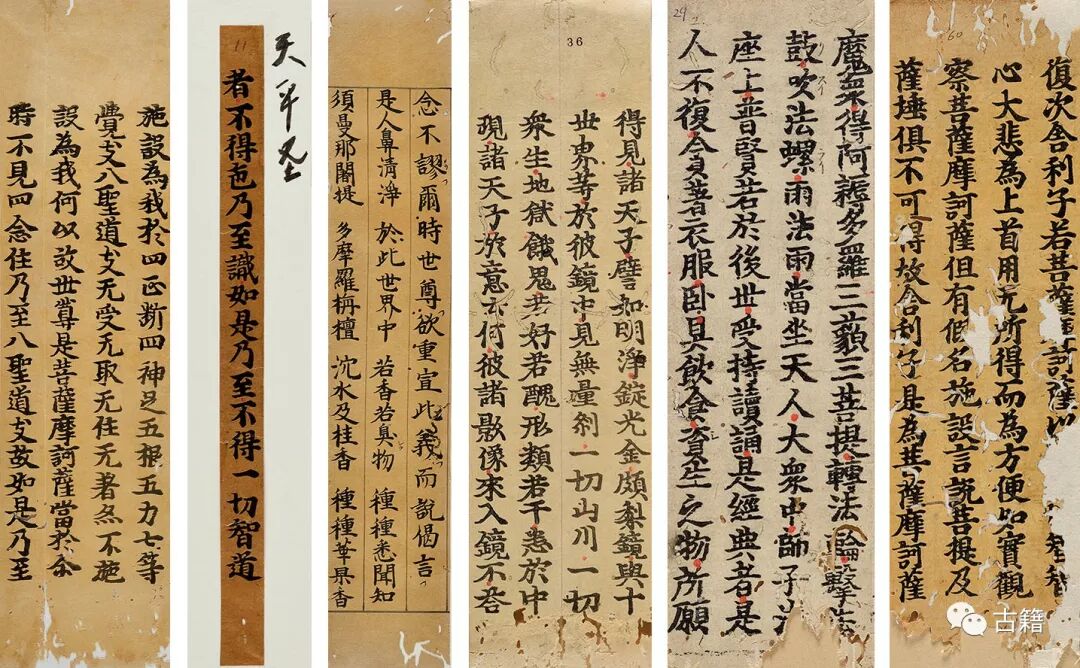 60
復次舍利子若菩薩摩訶薩以 智智
心大悲為上首用无所得而為方便如實觀
察菩薩摩訶薩但有假名施設言說菩提及
薩埵俱不可得故舍利子是為菩薩摩訶薩
29
魔眾得阿耨多羅三藐三菩提轉法輪擊法
鼓吹法螺雨法雨當坐天人大眾中師子法
座上普賢若於後世受持讀誦是經典者是
人不復貪著衣服臥具飲食資生之物所願
36
得見諸天子譬如明淨錠光金頗梨鏡與十
世界等於彼鏡中見無量剎一切山川一切
眾生地獄餓鬼若好若醜形類若干悉於中
現諸天子於意云何彼諸影像來入鏡不答
念不謬爾時世尊欲重宣此義而說偈言
是人鼻清淨 於此世界中 若香若臭物 種種悉聞知
須曼那闍提 多摩羅栴檀 沈水及桂香 種種華果香
天平
11
者不得色乃至識如是乃至不得一切智道
施設為我於四正斷四神足五根五力七等
覺支八聖道支无受无取无住无著亦不施
設為我何以故世尊是菩薩摩訶薩當於尒
時不見四念住乃至八聖道支故如是乃至
古籍